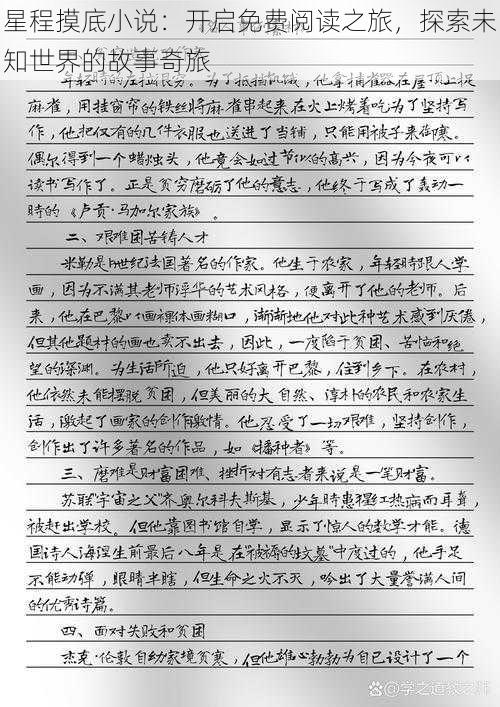 星程摸底小说：开启免费阅读之旅，探索未
知世界的故事奇旅
年轻時的左拉很穷。为了抵抗饥饿，他拿捕雀器在屋顶上捉
麻雀，用挂窗帘的铁丝将麻雀串起来在火上烤着吃为了坚持写
作，他把仅有的几件衣服也送进了当铺，只能用被子来御寒。
偶尔得到一个蜡烛头，他竟会如过节似的高兴，因为今夜可以
读书写作了。正是贫穷磨砺了他的意志，他终于写成了轰动一
時的《卢贡·马加尔家族》。
二、艰难困苦铸人才
米勒是19世纪法国著名的作家。他生于农家，年轻時跟人学
画，因为不满其老师浮华的艺术风格，便离开了他的老师。后
来，他在巴黎以画裸体画糊口，渐渐地他对此种艺术感到厌倦，
但其他题材的画也卖不出去，因此，一度陷于贫困、苦恼和绝
望的深渊。为生活所迫，他只好离开巴黎，住到乡下。在农村，
他依然未能摆脱贫困，但美丽的大自然、淳朴的农民和农家生
活，激起了画家的创作激情。他忍受了一切艰难，坚持创作，
创作出了许多著名的作品，如《播种者》等。
三、磨难是财富困难、挫折对有志者来说是一笔财富。
苏联"宇宙之父"齐奥尔科夫斯基，少年時患猩红热病而耳聋，
被赶出学校。但他靠图书馆自学，显示了惊人的数学才能。德
国诗人海涅生前最后八年是在"被褥的坟墓"中度过的，他手足
不能动弹，眼睛半瞎，但生命之火不灭，吟出了大量誉满人间
的优秀诗篇。
四、面对失败和贫困
杰克·伦敦自幼家境贫寒，但他雄心勃勃为自己设计了一个